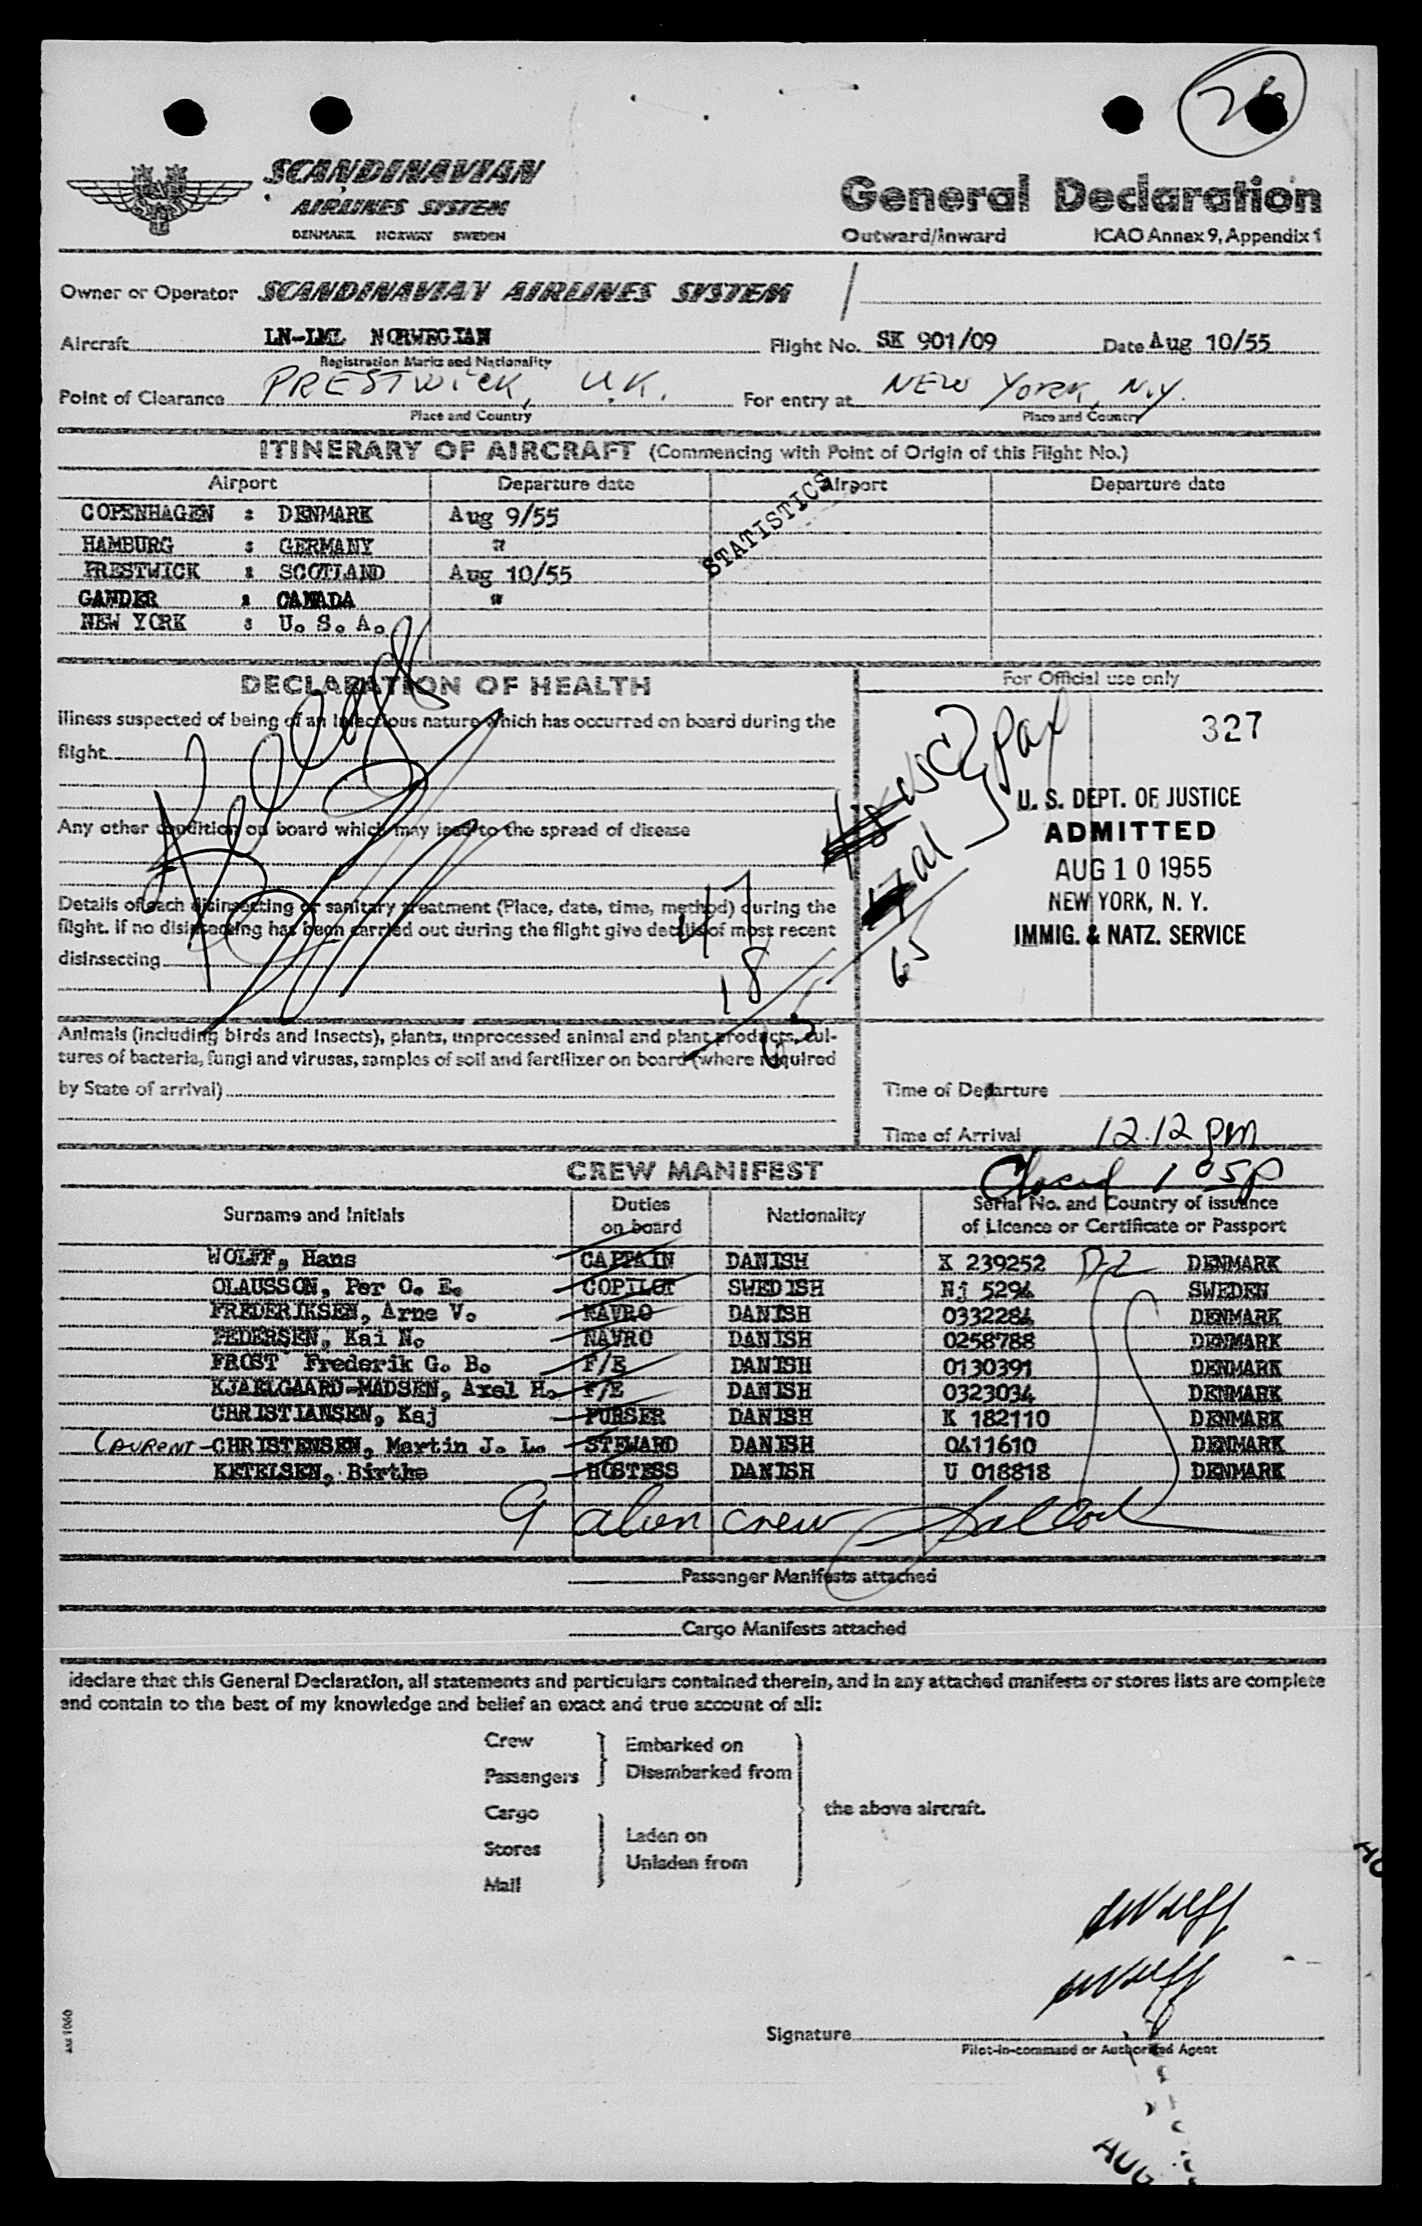 26
SCANDINAVIAN
AIRLINES SYSTEM
DENMARK NORWAY SWEDEN
General Declaration
Outward/Inward ICAO Annex 9, Appendix 1
Owner or Operator SCANDINAVIAN AIRLINES SYSTEM /
Aircraft LN-LML NORWEGIAN Flight No. SK 901/09 Date Aug 10/55
Registration Marks and Nationality
Point of Clearance PRESTWICK, U.K. For entry at NEW YORK, N.Y.
Place and Country Place and Country
ITINERARY OF AIRCRAFT (Commencing with Point of Origin of this Flight No.)
Airport Departure date Airport Departure date
STATISTICS
COPENHAGEN : DENMARK Aug 9/55
HAMBURG : GERMANY "
PRESTWICK : SCOTLAND Aug 10/55
GANDER : CANADA "
NEW YORK : U. S. A.
DECLARATION OF HEALTH
Illness suspected of being of an infectious nature which has occurred on board during the
flight
Any other condition on board which may lead to the spread of disease
Details of each disinsecting or sanitary treatment (Place, date, time, method) during the
flight. If no disinsecting has been carried out during the flight give details of most recent
disinsecting
47
18
65
Animals (including birds and insects), plants, unprocessed animal and plant products, cul-
tures of bacteria, fungi and viruses, samples of soil and fertilizer on board (where required
by State of arrival)
For Official use only
327
48 USC pax
17 al
65
U. S. DEPT. OF JUSTICE
ADMITTED
AUG 10 1955
NEW YORK, N. Y.
IMMIG. & NATZ. SERVICE
Time of Departure
Time of Arrival 12.12 pm
Closed 1 05p
CREW MANIFEST
Surname and Initials Duties on board Nationality Serial No. and Country of issuance of Licence or Certificate or Passport
WOLFF, Hans CAPTAIN DANISH K 239252 D-2 DENMARK
OLAUSSON, Per O. E. COPILOT SWEDISH Nj 5294 SWEDEN
FREDERIKSEN, Arne V. NAVRO DANISH 0332284 DENMARK
PEDERSEN, Kai N. NAVRO DANISH 0258788 DENMARK
FROST Frederik G. B. F/E DANISH 0130391 DENMARK
KJAELGAARD-MADSEN, Axel H. F/E DANISH 0323034 DENMARK
CHRISTIANSEN, Kaj PURSER DANISH K 182110 DENMARK
LAURENT-CHRISTENSEN, Martin J. L. STEWARD DANISH 0411610 DENMARK
KETELSEN, Birthe HOSTESS DANISH U 018818 DENMARK
9 alien crew
Passenger Manifests attached
Cargo Manifests attached
I declare that this General Declaration, all statements and particulars contained therein, and in any attached manifests or stores lists are complete
and contain to the best of my knowledge and belief an exact and true account of all:
Crew
Passengers
Embarked on
Disembarked from
Cargo
Stores
Mail
Laden on
Unladen from
the above aircraft.
Signature
Pilot-in-command or Authorized Agent
AUG